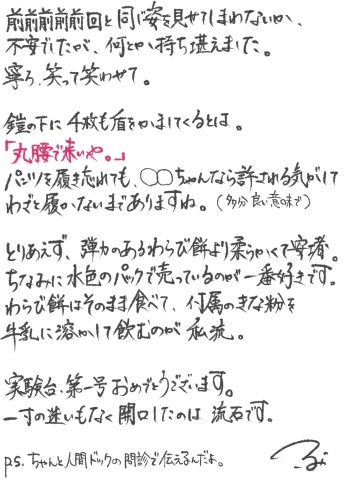 前前前前前回と同じ姿を見せてしまわないか、
不安でしたが、何とか持ち堪えました。
寧ろ、笑って笑わせて。
鎧の下に千枚も盾をかましてくるとは。
「丸腰で来いや。」
パンツを履き忘れても、○○ちゃんなら許される気がして
わざと履かないまでありますね。(多分良い意味で)
とりあえず、弾力のあるわらび餅より柔らかくて安堵。
ちなみに水色のパックで売っているのが一番好きです。
わらび餅はそのまま食べて、付属のきな粉を
牛乳に溶かして飲むのが私流。
実験台、第一号おめでとうございます。
一寸の迷いもなく開口したのは流石です。
p.s. ちゃんと人間ドックの問診で伝えるんだよ。